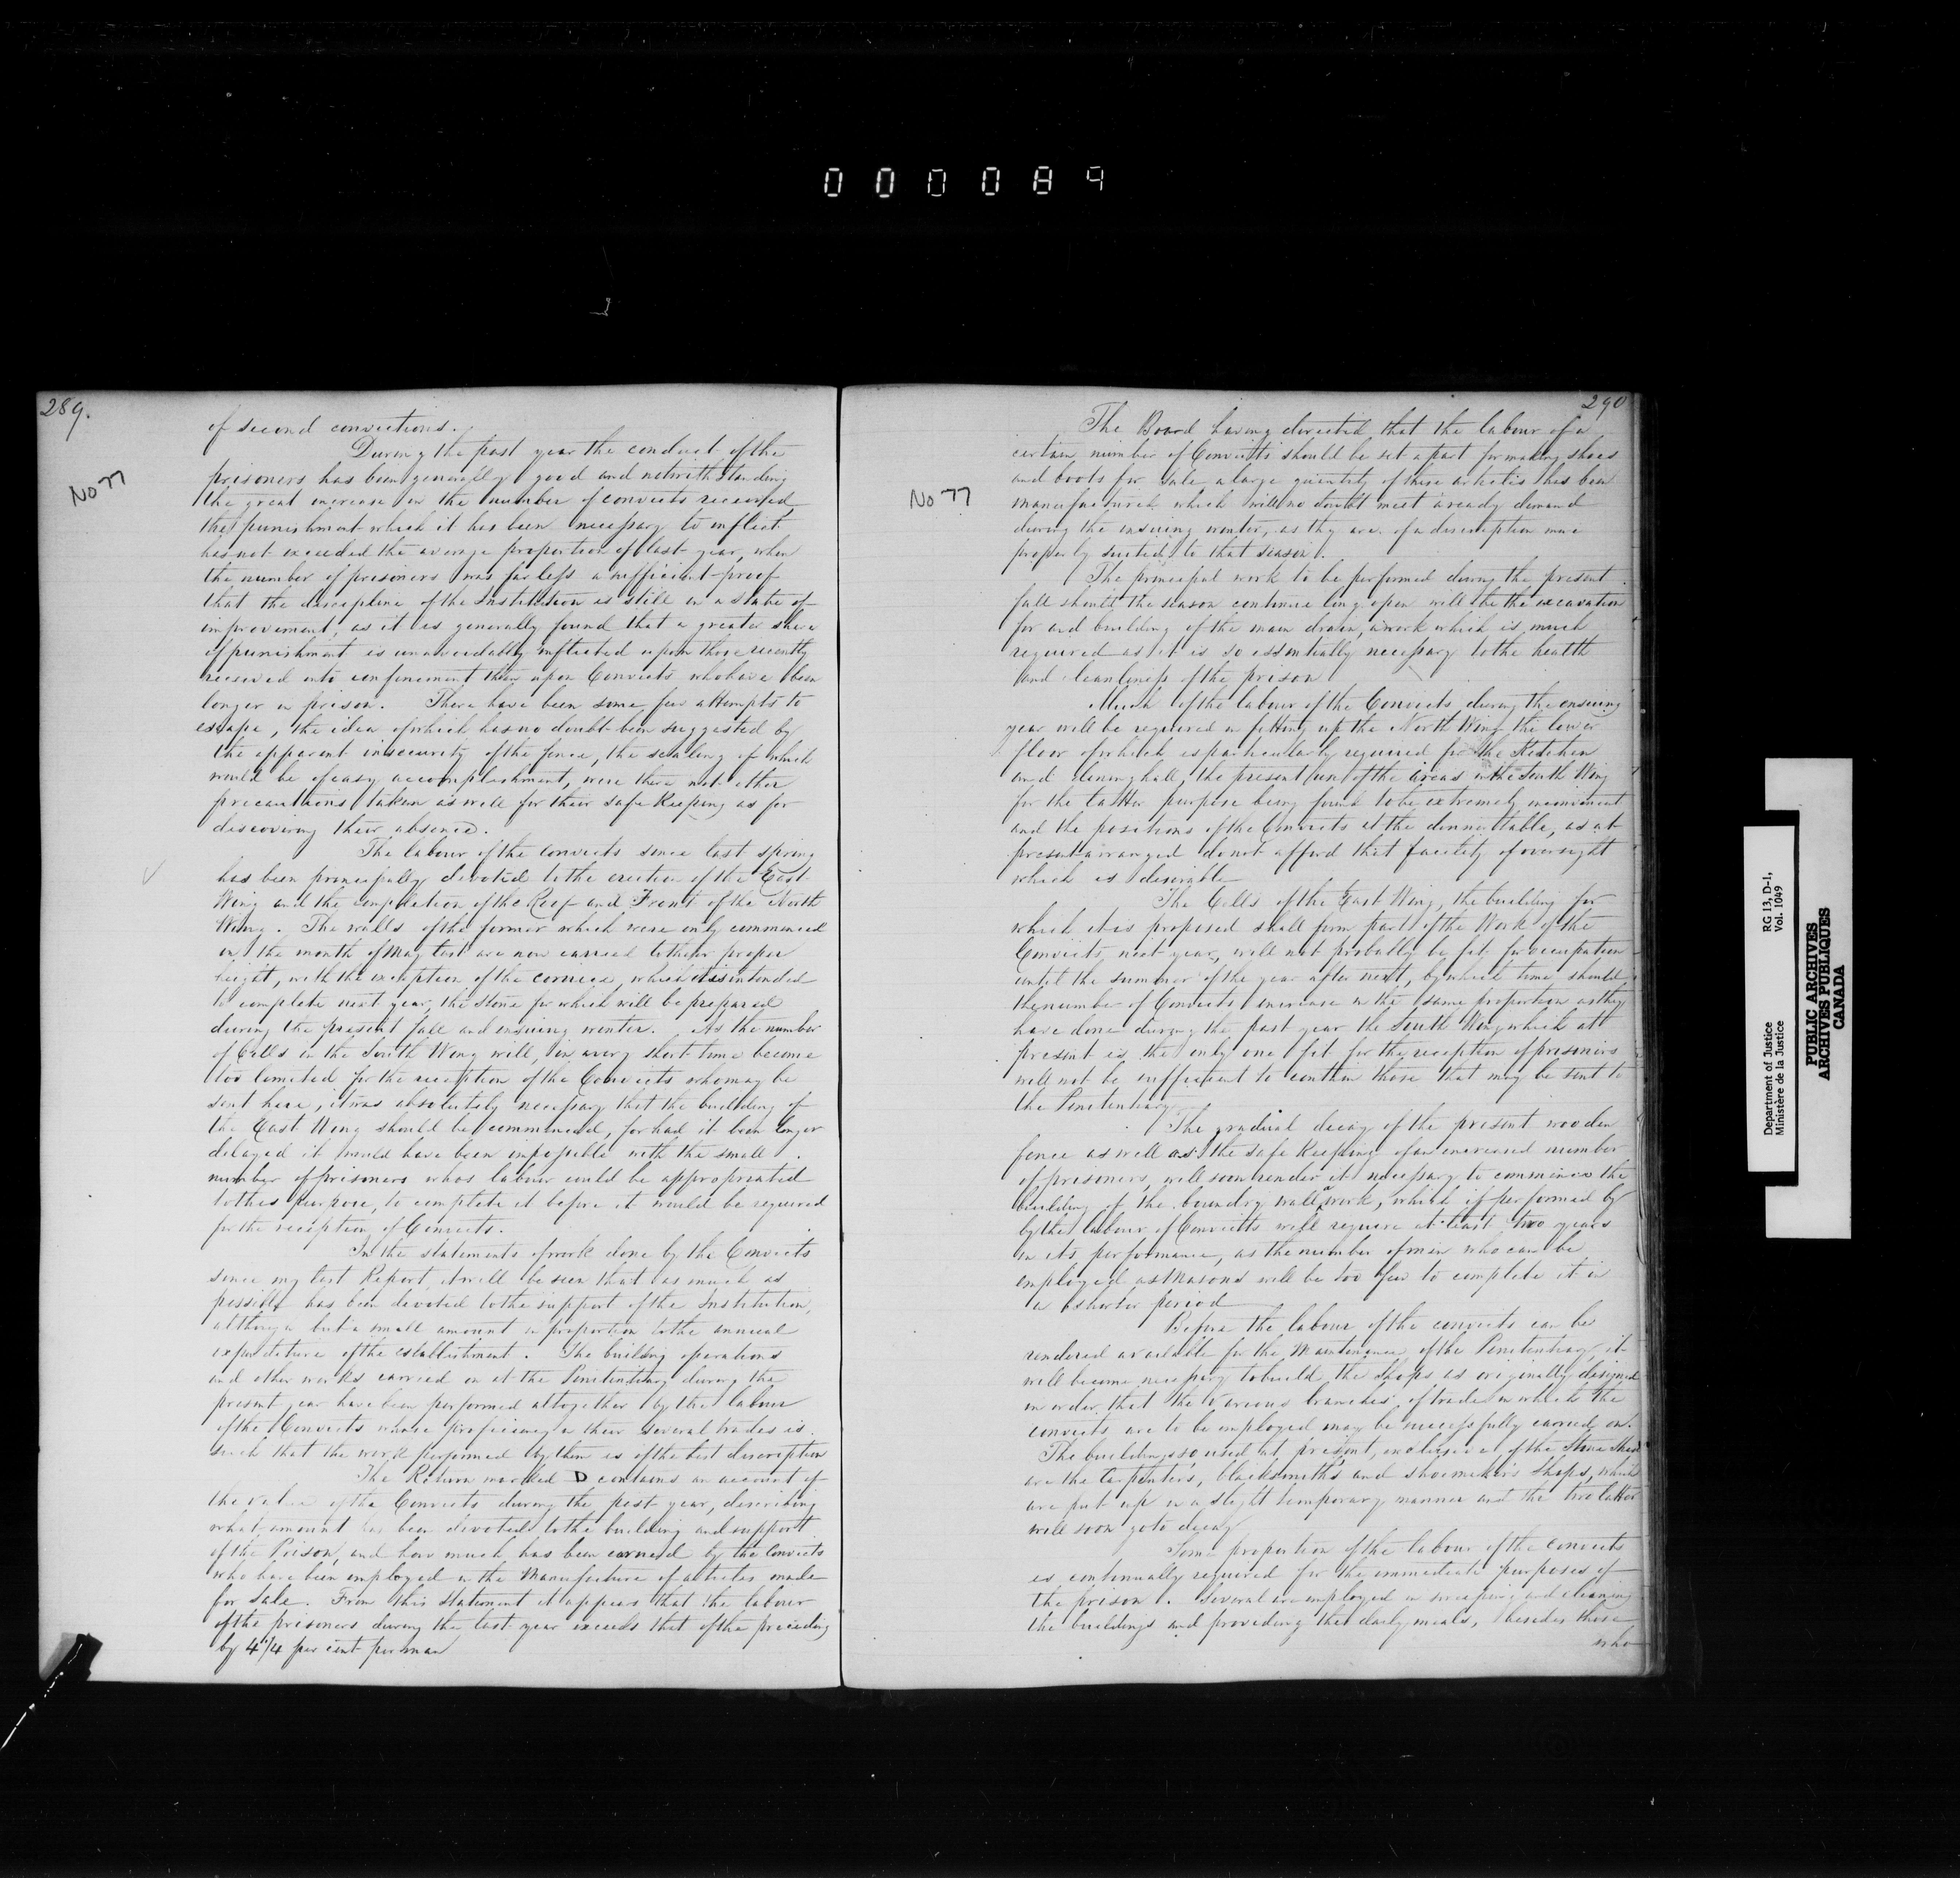 000089
289.
No 77
of second convictions.
During the past year the conduct of the
prisoners has been generally good and notwithstanding
the great increase in the number of convicts received
the punishment which it has been necessary to inflict
has not exceeded the average proportion of last year, when
the number of prisoners was far less a sufficient proof
that the discipline of the Institution is still in a state of
improvement, as it is generally found that a greater share
of punishment is unavoidably inflicted upon those recently
received into confinement than upon Convicts who have been
longer in prison. There have been some few attempts to
escape, the idea of which has no doubt been suggested by
the apparent insecurity of the fence, the scaling of which
would be of easy accomplishment, were there not other
precautions taken as well for their safe keeping as for
discovering their absence.
The labour of the convicts since last spring
has been principally devoted to the erection of the East
Wing and the completion of the Roof and Front of the North
Wing. The walls of the former which were only commenced
in the month of May last are now carried to their proper
height, with the exception of the cornice, which it is intended
to complete next year, the stone for which will be prepared
during the present fall and ensuing winter. As the number
of Cells in the South Wing will, in a very short time become
too limited for the reception of the Convicts who may be
sent here, it was absolutely necessary that the building of
the East Wing should be commenced, for had it been longer
delayed it would have been impossible with the small
number of prisoners whos labour could be appropriated
to this purpose, to complete it before it would be required
for the reception of Convicts.
In the statements of work done by the Convicts
since my last Report, it will be seen that as much as
possible has been devoted to the support of the Institution,
although but a small amount in proportion to the annual
expenditure of the establishment. The building operations
and other works carried on at the Penitentiary during the
present year have been performed altogether by the labour
of the Convicts whose proficiency in their several trades is
such that the work performed by them is of the best description
The Return marked D contains an account of
the value of the Convicts during the past year, describing
what amount has been devoted to the building and support
of the Prison, and how much has been earned by the Convicts
who have been employed in the Manufacture of articles made
for Sale. From this Statement it appears that the labour
of the prisoners during the last year exceeds that of the preceding
by 4 1/4 per cent per man
290
No 77
The Board having directed that the labour of a
certain number of Convicts should be set apart for making shoes
and boots for sale a large quantity of these articles has been
manufactured which will no doubt meet a ready demand
during the ensuing winter, as they are of a description more
properly suited to that season.
The principal work to be performed during the present
fall should the season continue long open will be the excavation
for and building of the main drain, a work which is much
required as it is so essentially necessary to the health
and cleanliness of the prison
Much of the labour of the Convicts during the ensuing
year will be required in fitting up the North Wing the lower
floor of which is particularly required for the Kitchen
and dining hall, the present use of the areas in the South Wing
for the latter purpose being found to be extremely inconvenient
and the positions of the Convicts at the dinner table, as at
present arranged do not afford that facility of oversight
which is desirable
The Cells of the East Wing, the building for
which it is proposed shall form part of the Work of the
Convicts next year, will not probably be fit for occupation
until the summer of the year after next, by which time should
the number of Convicts increase in the same proportion as they
have done during the past year the South Wing which att
present is the only one fit for the reception of prisoners
will not be sufficient to contain those that may be sent to
the Penitentiary
The gradual decay of the present wooden
fence as well as the safe Keeping of an increased number
of prisoners, will soon render it necessary to commence the
building of the boundry wall a work, which if performed by
by the labour of Convicts will require at least two years
in its performance, as the number of men who can be
employed as Masons will be too few to complete it in
a shorter period
Before the labour of the convicts can be
rendered available for the Maintenance of the Penitentiary, it
will become necessary to build the Shops as originally designed
in order that the various branches of trade in which the
convicts are to be employed may be successfully carried on.
The buildings so used at present, exclusive of the Stone Shed
are the Carpenters, blacksmith's and shoemaker's Shops, which
are put up in a slight temporary manner and the two latter
will soon go to decay
Some proportion of the labour of the convicts
is continually required for the immediate purposes of
the prison. Several are employed in sweeping and cleaning
the buildings and providing the daily meals, besides those
who
Department of Justice
Ministère de la Justice
RG 13, D-1,
Vol. 1049
PUBLIC ARCHIVES
ARCHIVES PUBLIQUES
CANADA